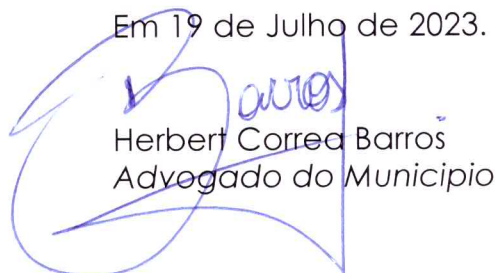 Em 19 de Julho de 2023.
Barros
Herbert Correa Barros
Advogado do Municipio